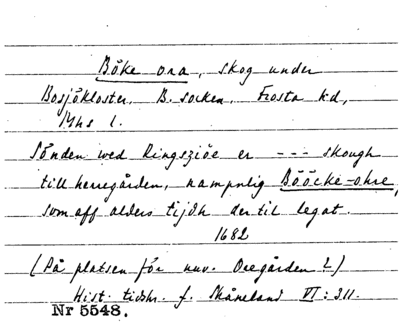 Böke ora, skog under
Bosjökloster, B. socken, Frosta hd,
Mhs l.
Sönden wed Ringsziöe er --- skough
till herregården, nampnlig Bööcke-ohre,
som aff alders tijdh der til legat.
1682
(På platsen för nuv. Oregården?)
Hist. tidskr. f. Skåneland VI: 311.
Nr 5548.